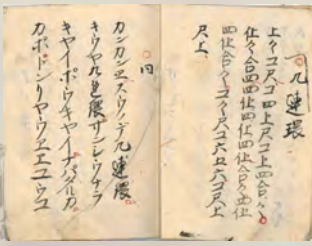 九連環
上々コ尺コ四上尺コ上四合合々
仕々合四四仕四仕合合々四仕
四仕合合々コ々尺コ六五六コ尺上
尺上
同
カンカンエスウノデ九連環
キウヤ九連環サンシウナラ
キヤイポウキヤイナパクルカ
カポドンリヤウエエコウユ